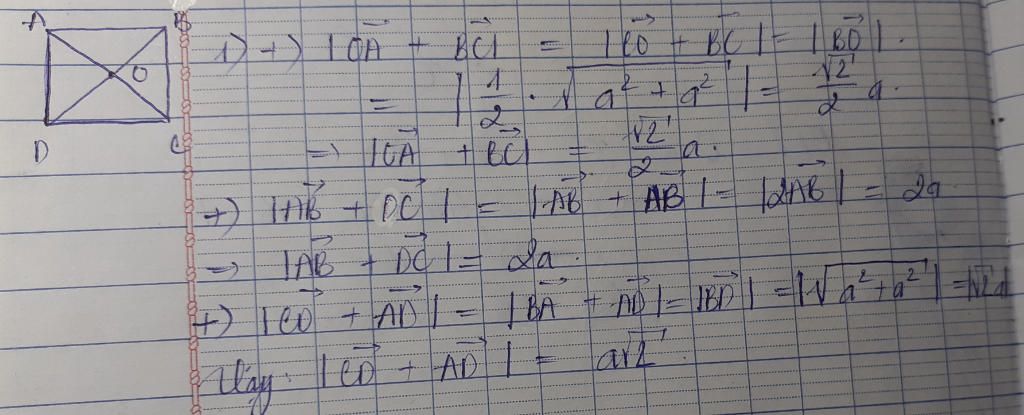 A B
O
D C
1) +) |OA⃗ + BC⃗| = |CO⃗ + BC⃗| = |BO⃗|.
= |1/2 . √(a² + a²)| = √2/2 a.
⇒ |OA⃗ + BC⃗| = √2/2 a.
+) |AB⃗ + DC⃗| = |AB⃗ + AB⃗| = |2AB⃗| = 2a
⇒ |AB⃗ + DC⃗| = 2a.
+) |CD⃗ + AD⃗| = |BA⃗ + AD⃗| = |BD⃗| = |√(a² + a²)| = |√2a|
Vậy: |CD⃗ + AD⃗| = a√2.